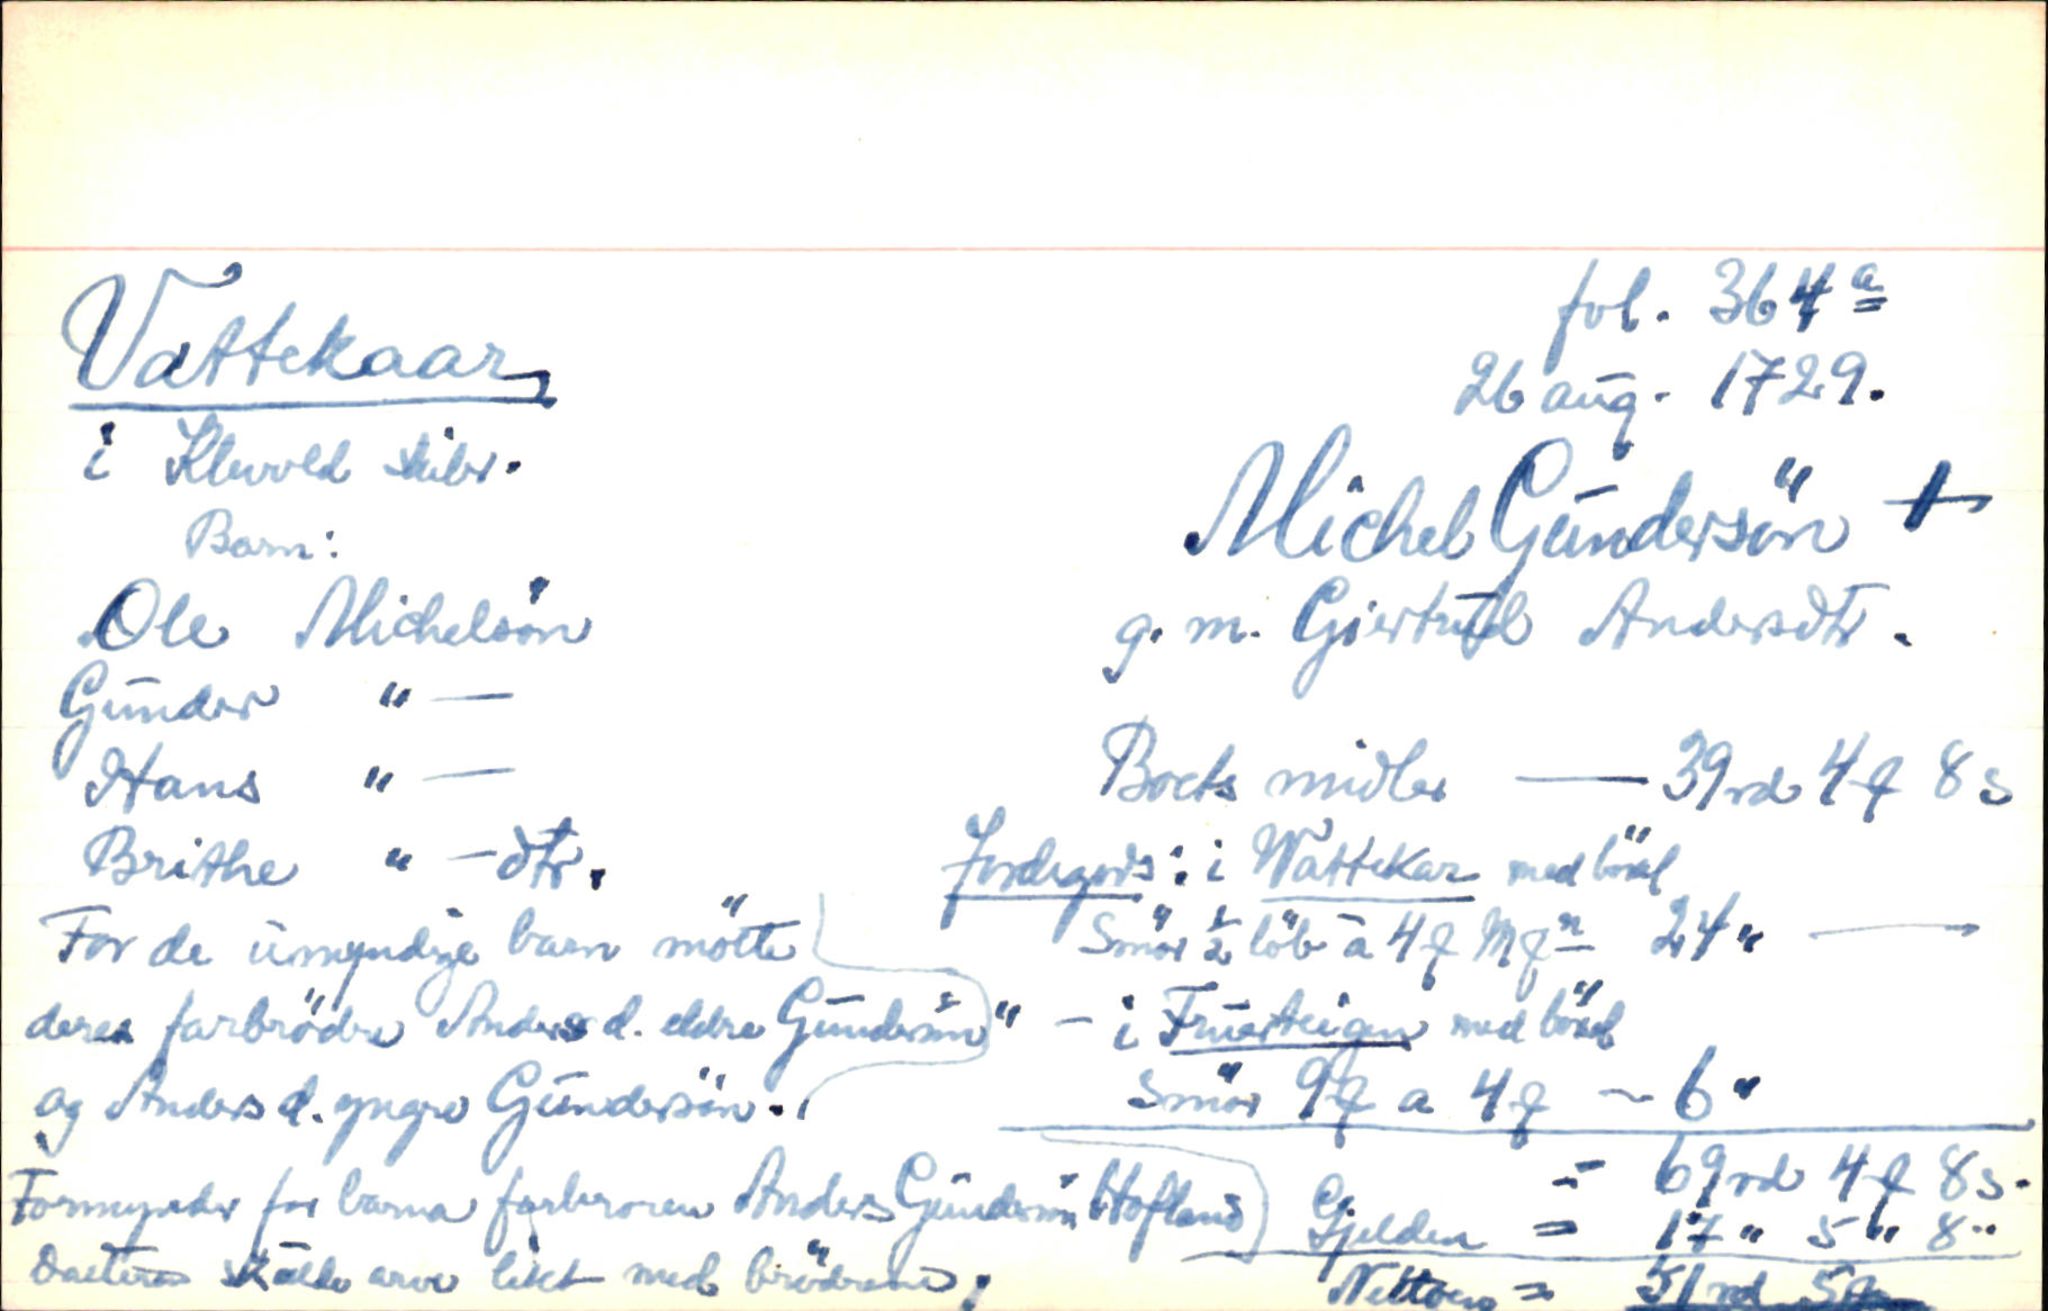 fol. 364 a
Vattekaar
26 aug. 1729.
i Klevold skibr.
Michel Gundersön +
Barn:
Ole Michelsön
g. m. Giertrud Andersdtr.
Gunder " —
Hans " —
Boets midler — 39 rd 4 f 8 s
Brithe " — dtr.
Jordegods: i Wattekar med böxel
For de umyndige barn mötte
Smör ½ löb a 4 f 24 " —
deres farbrödre Anders d. eldre Gundersön
" — i Fruerteigen med böxel
og Anders d. yngre Gundersön.
Smör 9 f a 4 f — 6 "
= 69 rd 4 f 8 s.
Formynder for barna farbroren Anders Gundersön Hofland
Gjelden = 17 " 5 " 8 "
Datteren skulde arve likt med brödrene.
Nettoen = 51 rd 5